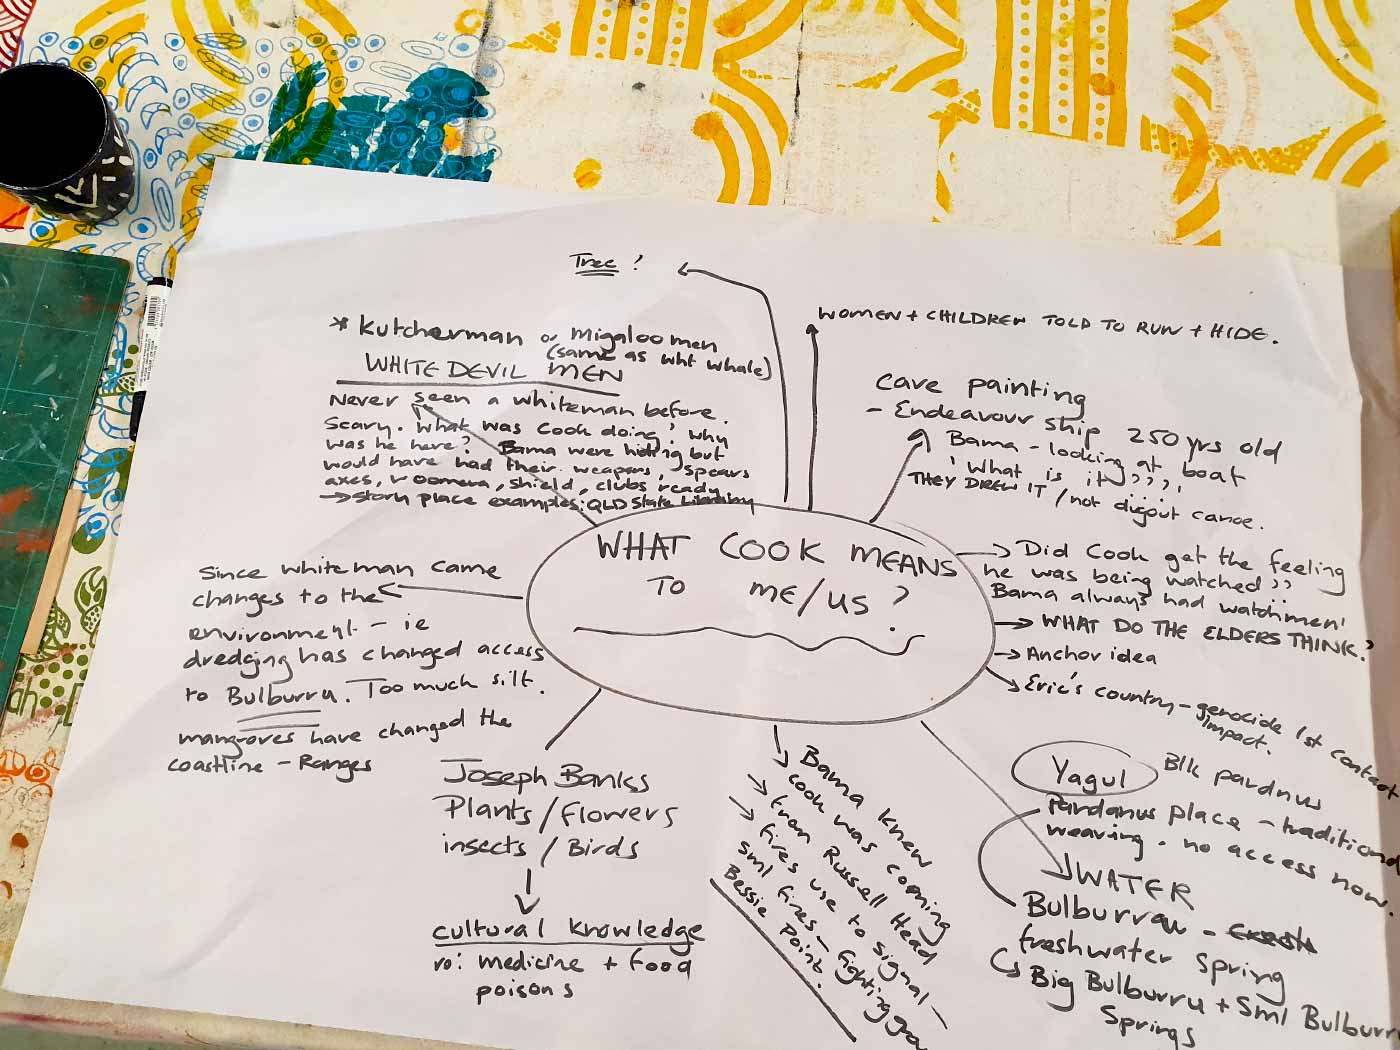 Tree ?
WOMEN + CHILDREN TOLD TO RUN + HIDE.
* Kutcherman or Migaloo men
(same as wht whale)
WHITE DEVIL MEN
Never seen a whiteman before.
Scary. What was Cook doing? Why
was he here? Bama were hiding but
would have had their weapons, spears
axes, woomera, shield, clubs ready
→ story place examples: QLD State Library
Cave painting
- Endeavour ship 250 yrs old
Bama - looking at boat
'What is it????'
THEY DREW IT / not digout canoe.
WHAT COOK MEANS
TO ME/US?
→ Did Cook get the feeling
he was being watched??
Bama always had watchmen!
→ WHAT DO THE ELDERS THINK?
→ Anchor idea
Eric's country - genocide 1st contact
impact.
Since whiteman came
changes to the
environment - ie
dredging has changed access
to Bulburru. Too much silt.
mangroves have changed the
coastline - Ranges
Joseph Banks
Plants / Flowers
insects / Birds
cultural knowledge
ro: medicine + food
poisons
Bama knew
cook was coming
→ from Russell Head
→ fires use to signal -
sml fires - fighting
Bessie Point.
Yagul
Blk pandnus
Pandanus place - traditional
weaving. no access now.
WATER
Bulburraw -
freshwater spring
Big Bulburru + Sml Bulburru
Springs